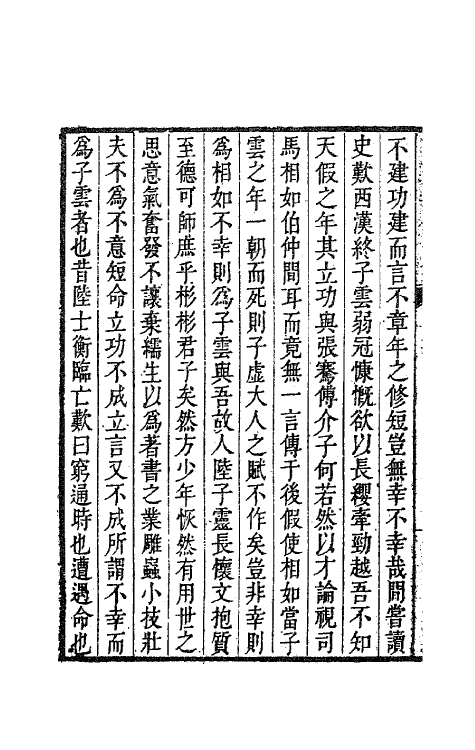 不建功建而言不章年之修短豈無幸不幸哉間嘗讀
史歎西漢終子雲弱冠慷慨欲以長纓牽勁越吾不知
天假之年其立功與張騫傅介子何若然以才論視司
馬相如伯仲間耳而竟無一言傳于後假使相如當子
雲之年一朝而死則子虛大人之賦不作矣豈非幸則
爲相如不幸則爲子雲與吾故人陸子靈長懷文抱質
至德可師庶乎彬彬君子矣然方少年恢然有用世之
思意氣奮發不讓棄繻生以爲著書之業雕蟲小技壯
夫不爲不意短命立功不成立言又不成所謂不幸而
爲子雲者也昔陸士衡臨亡歎曰窮通時也遭遇命也